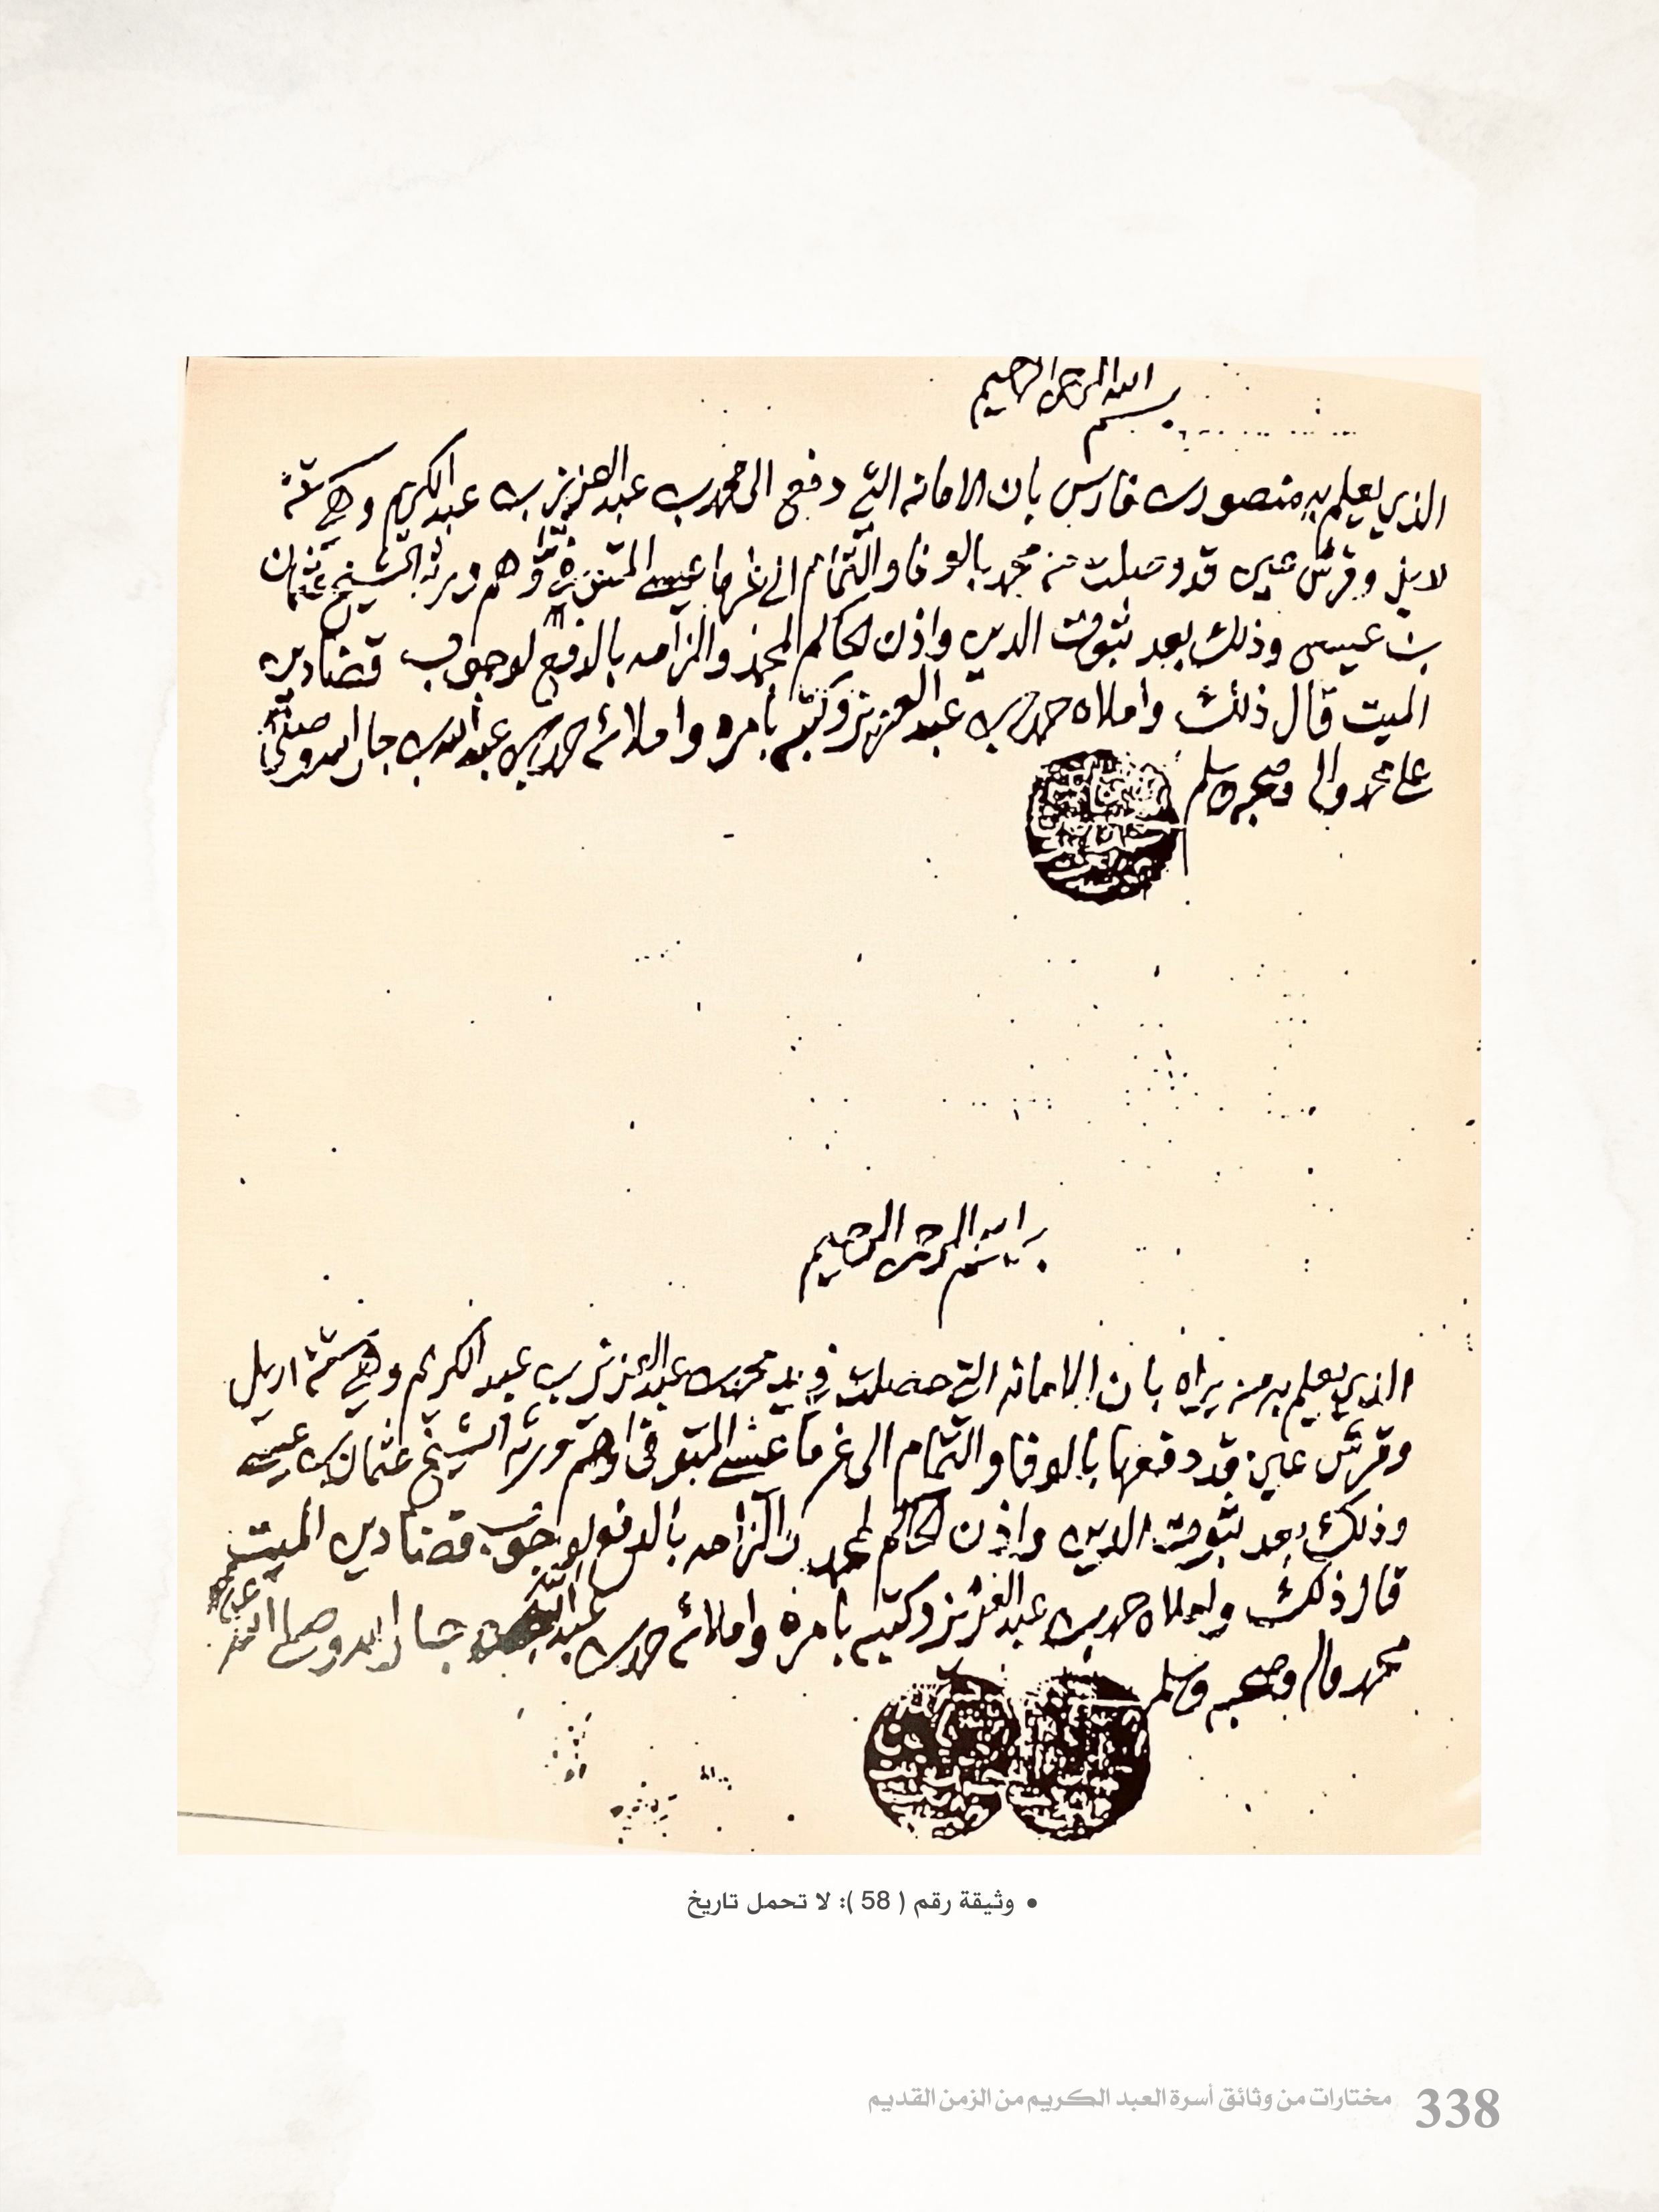 بسم الله الرحمن الرحيم
الذي يعلم به منصور بن فارس بان الامانه التي دفع الى محمد بن عبد العزيز بن عبد الكريم وهي ستة
وقرش عين قد وصلت من محمد بالوفا والتمام الى غرما عيسى المتوفى وهم ورثة الشيخ عثمان
بن عيسى وذلك بعد ثبوت الدين واذن الحاكم لمحمد والزامه بالدفع لوجوب قضا دين
الميت قال ذلك واملاه حمد بن عبد العزيز وكتبه بامره واملائه حمد بن عبد الله بن جار الله وصلى الله
على محمد واله وصحبه وسلم
بسم الله الرحمن الرحيم
الذي يعلم به من يراه بان الامانه التي حصلت في يد محمد بن عبد العزيز بن عبد الكريم وهي ستة اريل
وقرش عين قد دفعها بالوفا والتمام الى غرما عيسى المتوفى وهم ورثه الشيخ عثمان بن عيسى
وذلك بعد ثبوت الدين واذن الحاكم لمحمد والزامه بالدفع لوجوب قضا دين الميت
قال ذلك واملاه حمد بن عبد العزيز وكتبه بامره واملائه حمد بن عبد الله بن جار الله وصلى الله على
محمد واله وصحبه وسلم
• وثيقة رقم ( 58 ): لا تحمل تاريخ
338 مختارات من وثائق أسرة العبد الكريم من الزمن القديم